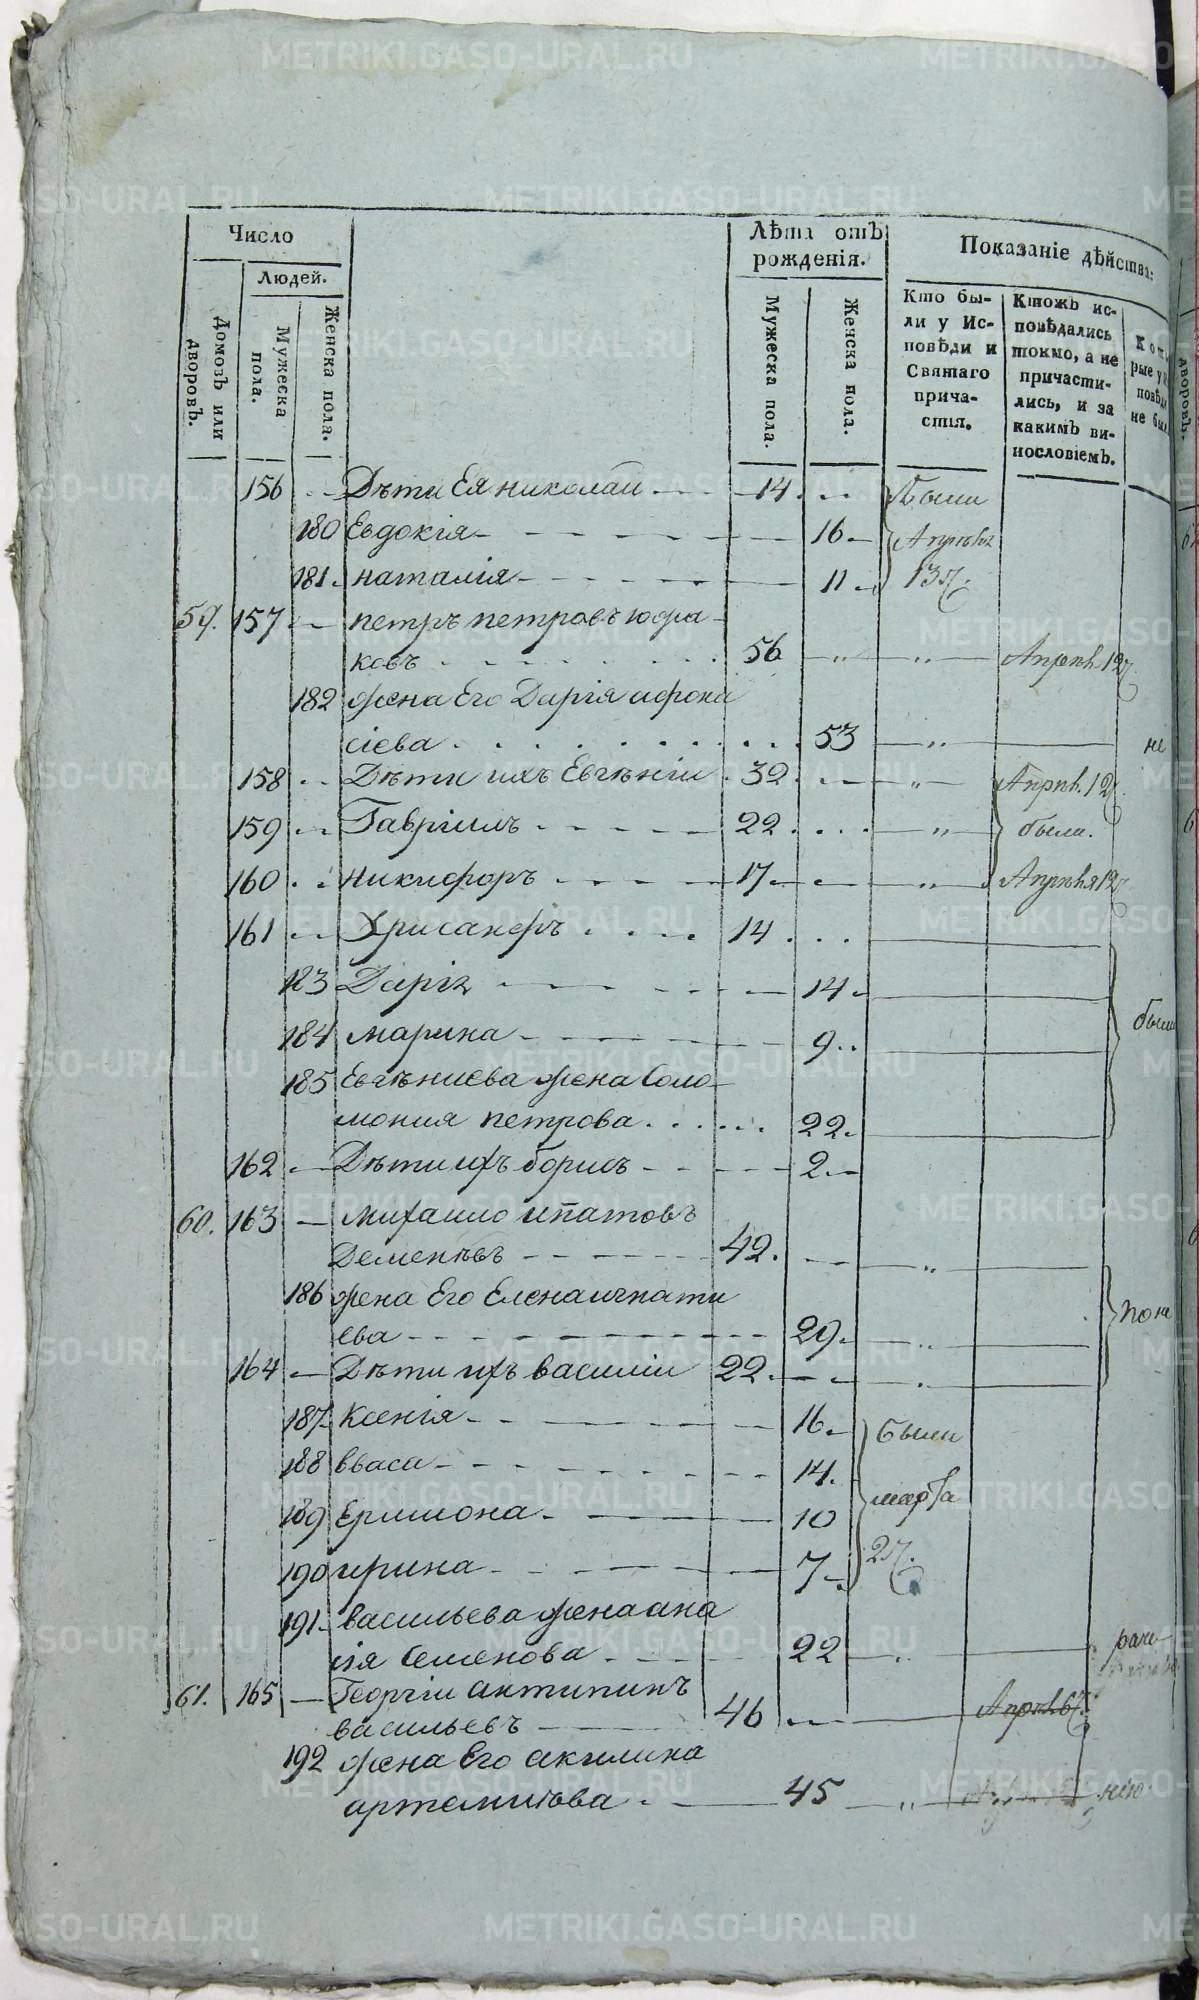 Число
Лѣта отъ рождения.
Показаніе дѣйства:
Людей.
Домовъ или дворовъ.
Мужеска пола.
Женска пола.
Мужеска пола.
Женска пола.
Кто были у Исповѣди и Святаго причастія.
Ктожъ исповѣдались токмо, а не причастились, и за какимъ винословіемъ.
156 Дѣти Ея Николай 14 Были
180 Евдокія 16 Апрѣля
181 наталія 11 13
59. 157 петръ петровъ юфра-
ковъ 56 Апрѣл. 12
182 жена Его Дарія афона
сіева 53 не
158 Дѣти ихъ Евгѣній 32 Апрѣл. 12
159 Гавріилъ 22 были.
160 Никифоръ 17 Апрѣля 12
161 Хрисанфъ 14
183 Дарія 14
184 марина 9 были
185 Евгѣниева жена Соло-
мония петрова 22
162 Дѣти ихъ борисъ 2
60. 163 Михаило ипатовъ
Дементьевъ 42
186 жена Его Елена игнати
ева 29
164 Дѣти ихъ василіи 22
187 Ксенія 16 были
188 14
189 Ермиона 10 марта
190 ирина 7
191 васильева жена ана
Семенова 22
61. 165 Георгіи антипинъ
васильевъ 46 Апрѣл. 6
192 жена Его акилина
артемиева 45 нію
METRIKI.GASO-URAL.RU